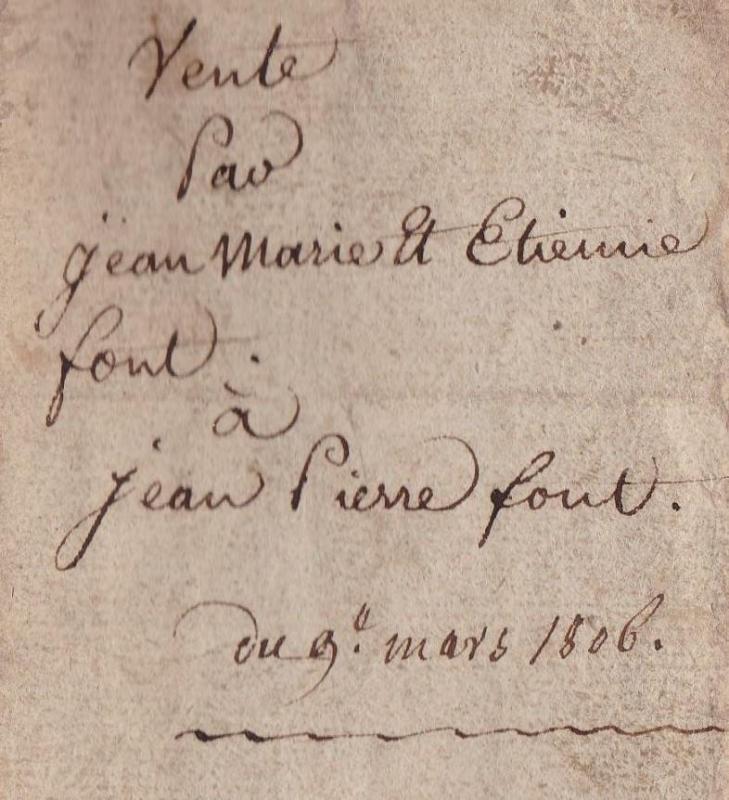 Vente
Par
jean Marie et Etienne
font.
à
jean Pierre font.
du 9e. mars 1806.